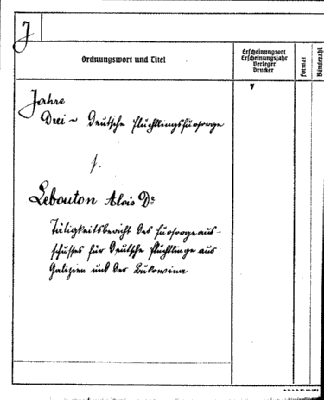 J
Ordnungswort und Titel
Erscheinungsort
Erscheinungsjahr
Verleger
Drucker
Format
Bändezahl
Jahre
Drei – Deutsche Flüchtlingsfürsorge
s.
Lebouton Alois Dr
Tätigkeitsbericht des Fürsorgeaus-
schusses für Deutsche Flüchtlinge aus
Galizien und der Bukowina